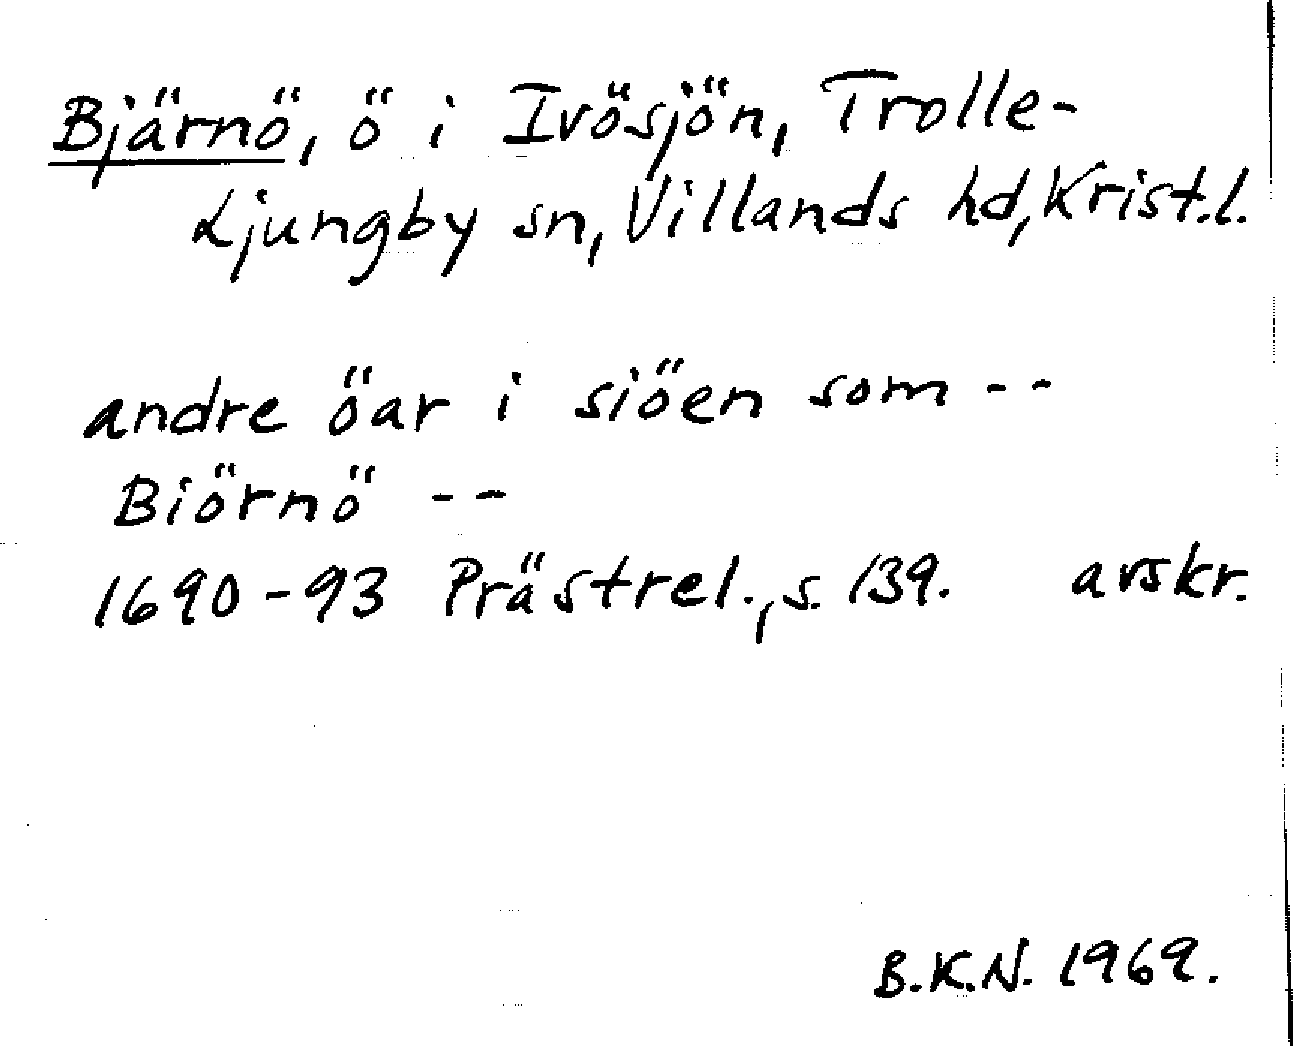 Bjärnö, ö i Ivösjön, Trolle-
Ljungby sn, Villands hd, Krist.l.
andre öar i siöen som --
Biörnö --
1690-93 Prästrel., s. 139. avskr.
B.K.N. 1969.